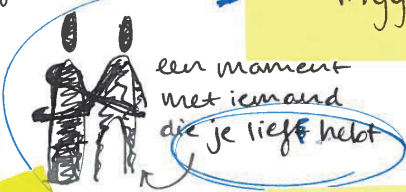 een moment
met iemand
die je lieft hebt